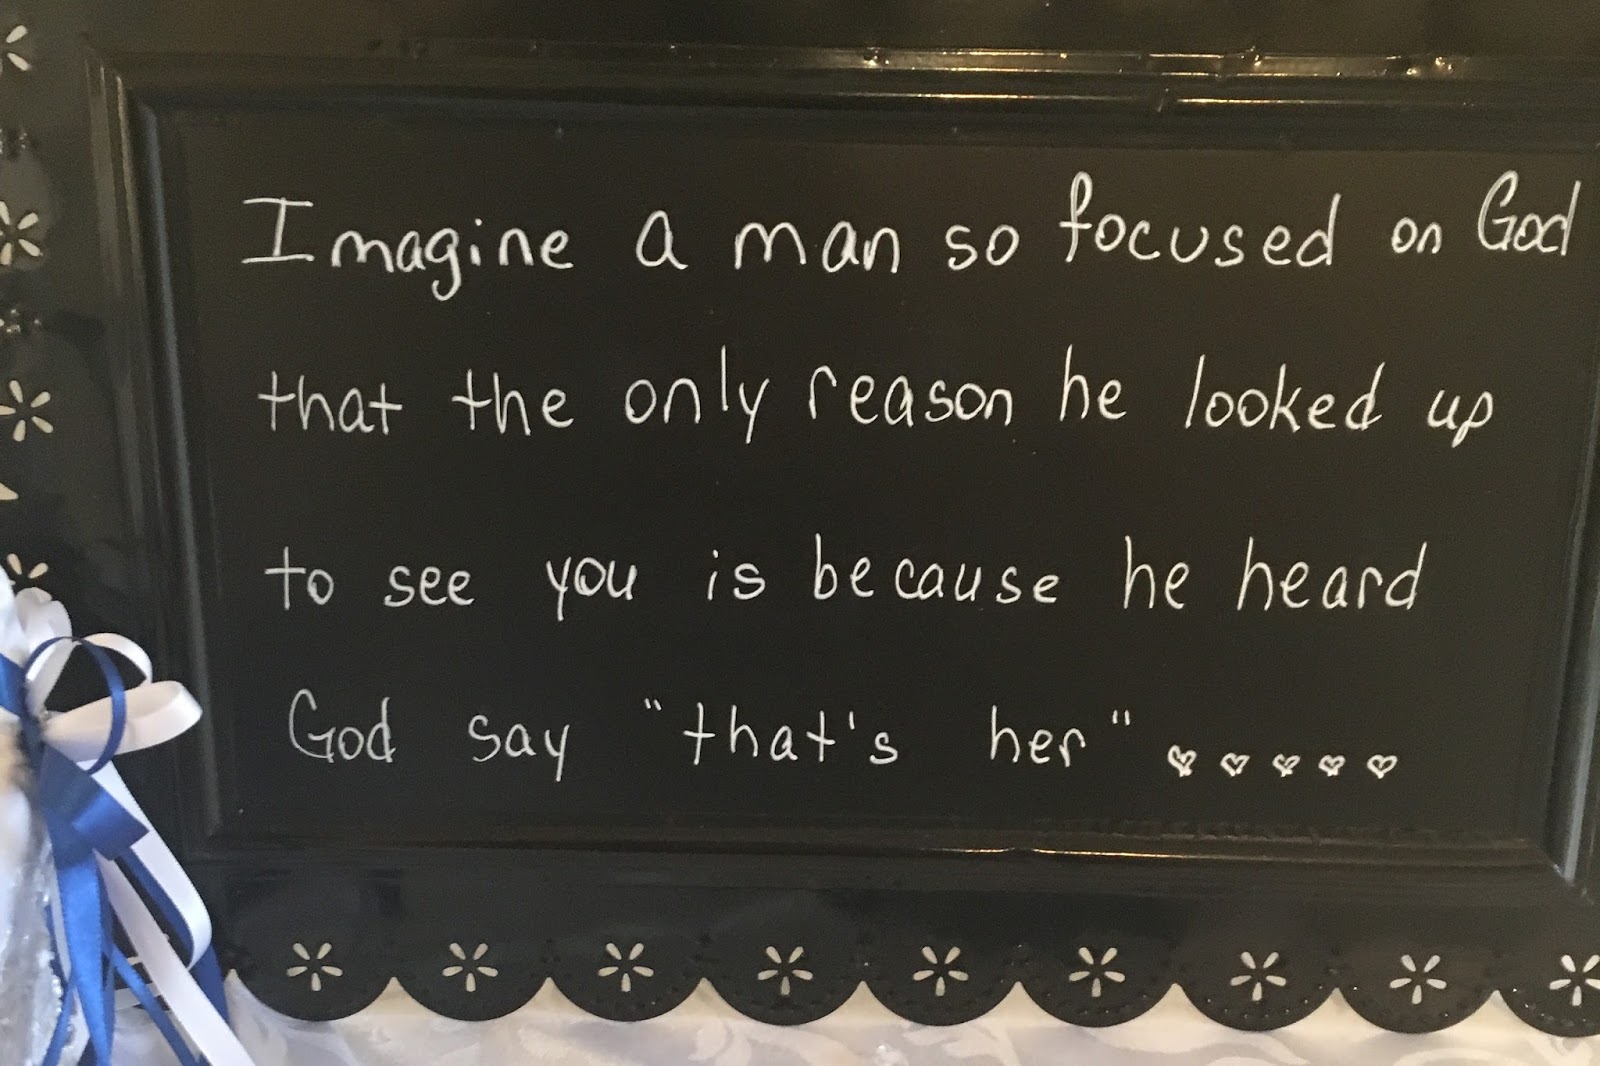 Imagine a man so focused on God
that the only reason he looked up
to see you is because he heard
God say "that's her" ♡♡♡♡♡